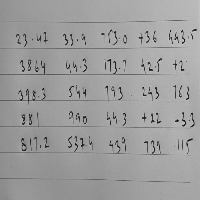 23.47 33.9 753.0 +36 443.5
3864 44.3 173.7 42.5 +2
398.3 544 793 243 763
881 990 443 +22 -3.3
817.2 5374 439 739 115